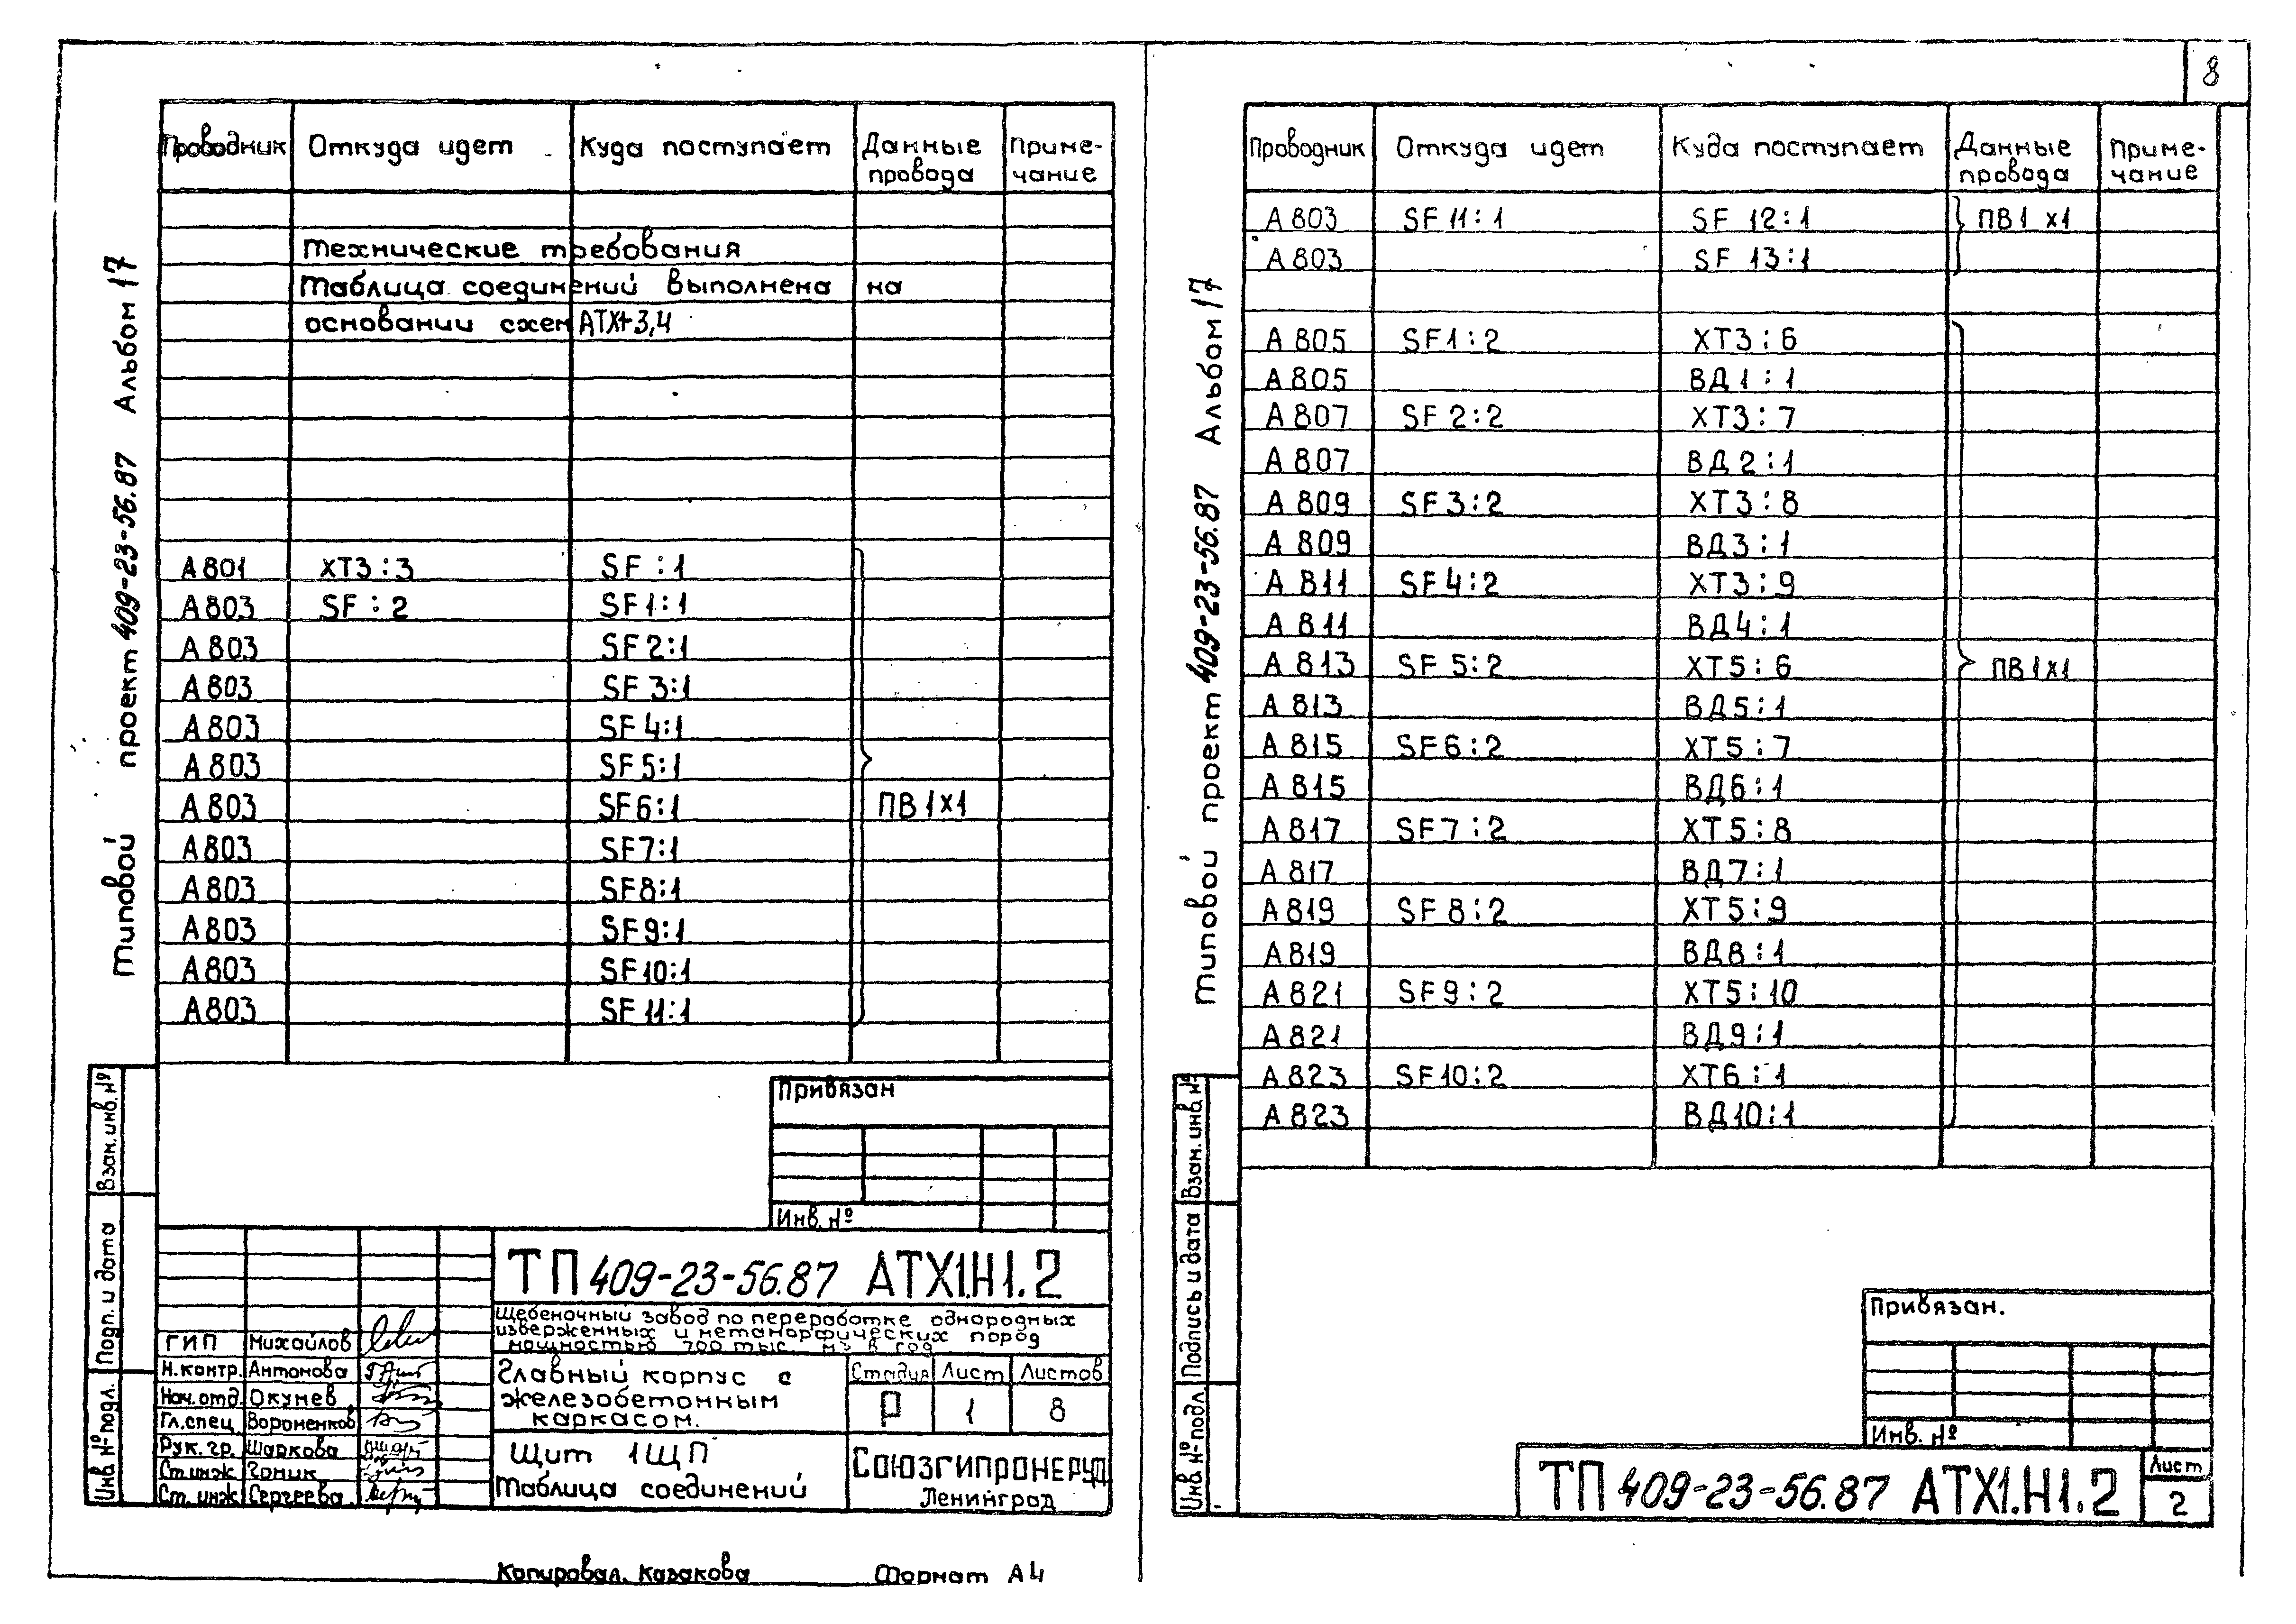 8
Типовой проект 409-23-56.87 Альбом 17
Проводник Откуда идет Куда поступает Данные провода Приме-чание
Технические требования
Таблица соединений выполнена на
основании схем АТХ1-3,4
А801 ХТ3:3 SF :1
А803 SF :2 SF1:1
А803 SF2:1
А803 SF3:1
А803 SF4:1
А803 SF5:1
А803 SF6:1 ПВ1х1
А803 SF7:1
А803 SF8:1
А803 SF9:1
А803 SF10:1
А803 SF11:1
Привязан
Инв. №
Взам. инв. №
Подп. и дата
Инв. № подл.
ТП 409-23-56.87 АТХ1.Н1.2
Щебеночный завод по переработке однородных
изверженных и метаморфических пород
мощностью 700 тыс. м3 в год
ГИП Михайлов
Н.контр. Антонова
Нач.отд. Окунев
Гл.спец Вороненков
Рук. гр. Шаркова
Ст.инж Гоник
Ст.инж Сергеева
Главный корпус с
железобетонным
каркасом.
Стадия Лист Листов
Р 1 8
Щит 1ЩП
Таблица соединений
СОЮЗГИПРОНЕРУД
Ленинград
Копировал. Казакова Формат А4
Типовой проект 409-23-56.87 Альбом 17
Проводник Откуда идет Куда поступает Данные провода Приме-чание
А803 SF11:1 SF 12:1 ПВ1 х1
А803 SF 13:1
А805 SF1:2 ХТ3:6
А805 ВД1:1
А807 SF2:2 ХТ3:7
А807 ВД2:1
А809 SF3:2 ХТ3:8
А809 ВД3:1
А811 SF4:2 ХТ3:9
А811 ВД4:1
А813 SF5:2 ХТ5:6 ПВ1х1
А813 ВД5:1
А815 SF6:2 ХТ5:7
А815 ВД6:1
А817 SF7:2 ХТ5:8
А817 ВД7:1
А819 SF8:2 ХТ5:9
А819 ВД8:1
А821 SF9:2 ХТ5:10
А821 ВД9:1
А823 SF10:2 ХТ6:1
А823 ВД10:1
Взам. инв. №
Подпись и дата
Инв. № подл.
Привязан.
Инв. №
ТП 409-23-56.87 АТХ1.Н1.2
Лист
2